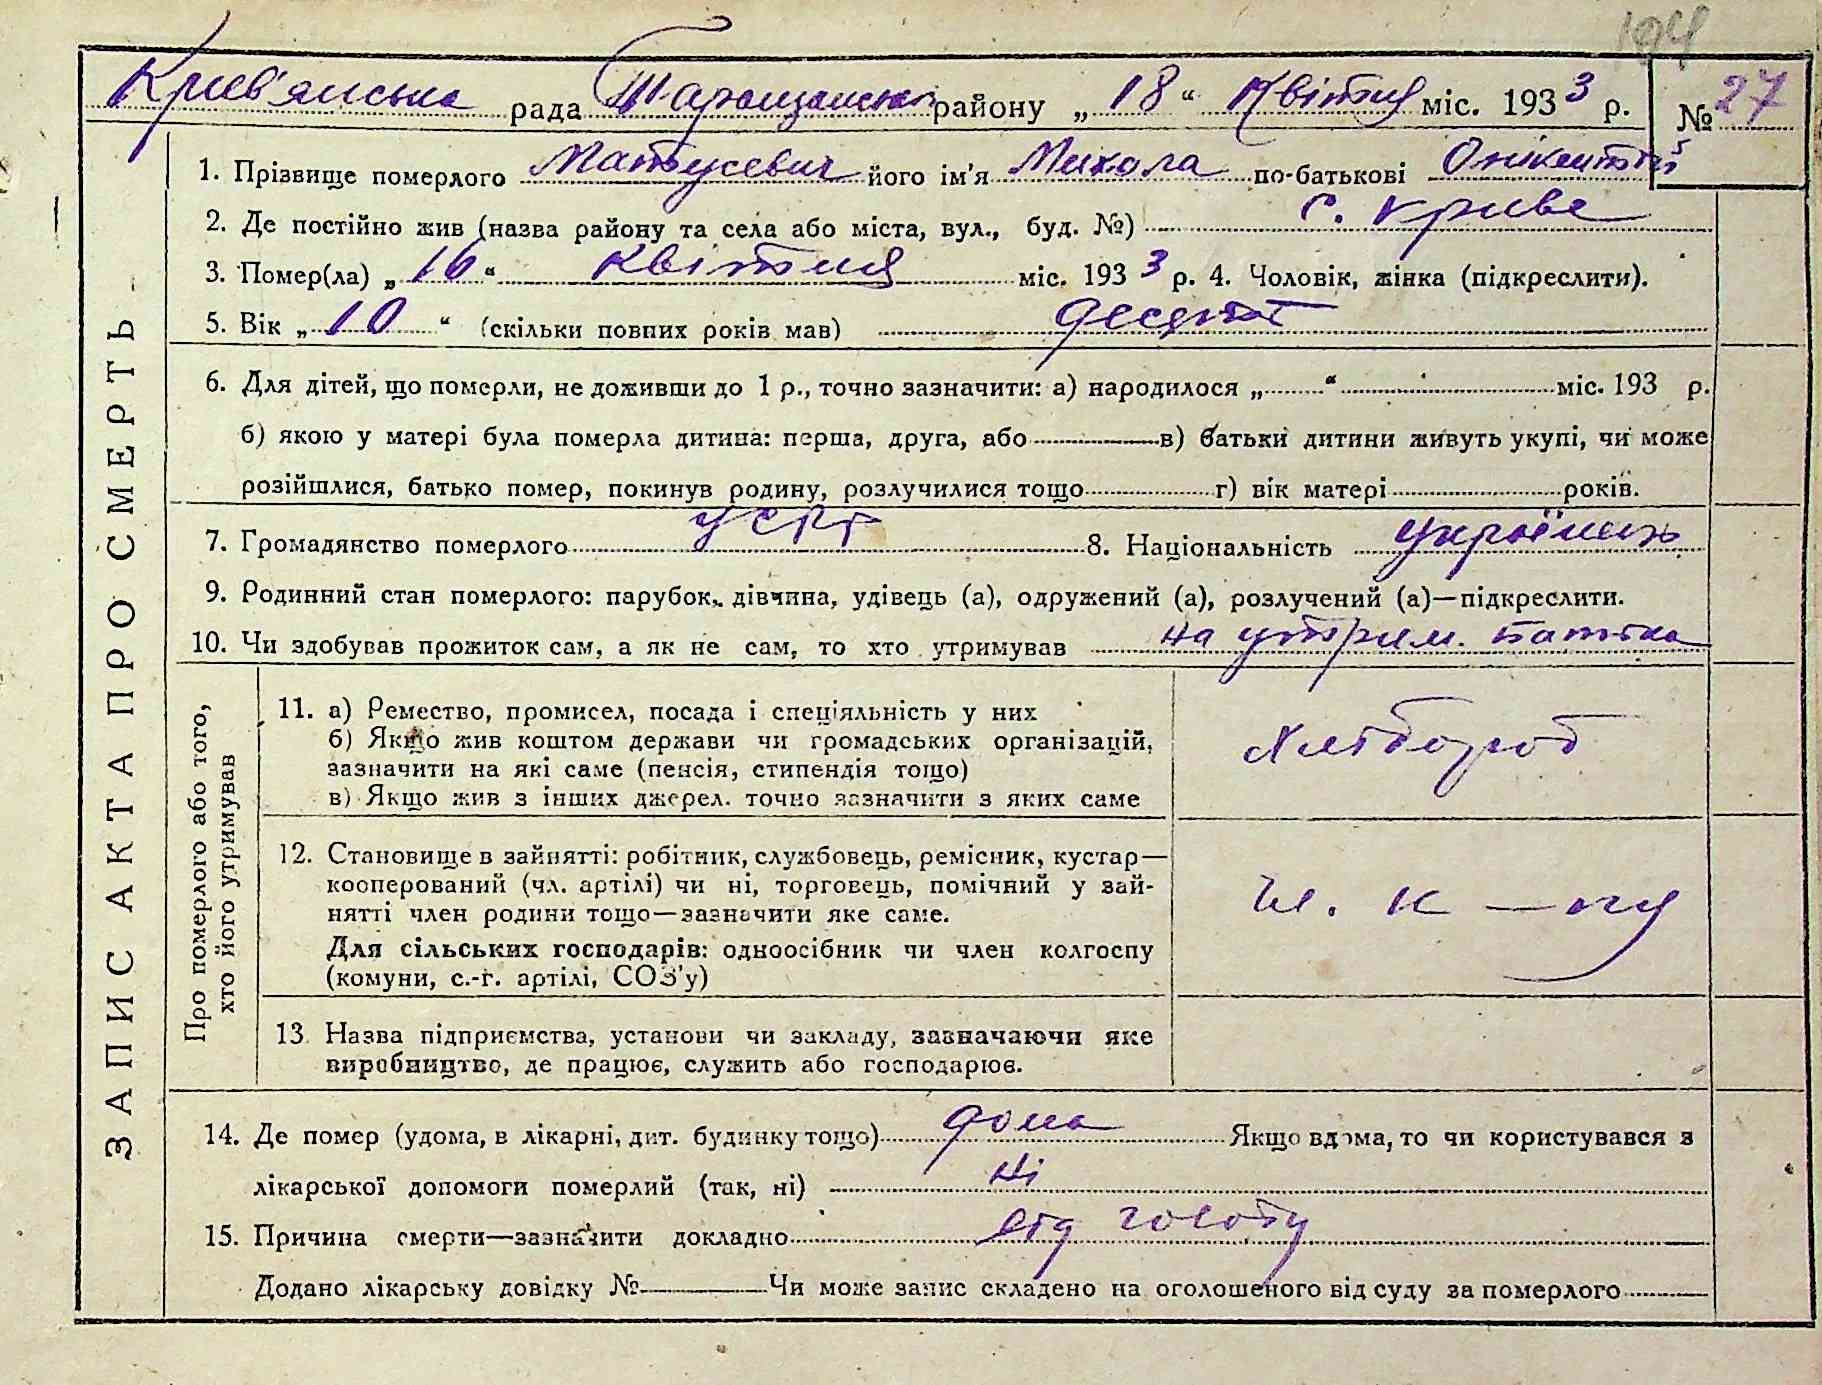 194
Крив'янська рада Таращанськ району „18“ Квітня міс. 1933 р. № 27
1. Прізвище померлого Матусевич його ім'я Микола по-батькові Онікентій
2. Де постійно жив (назва району та села або міста, вул., буд. №) с. Криве
3. Помер(ла) „16“ квітня міс. 1933 р. 4. Чоловік, жінка (підкреслити).
5. Вік „10“ (скільки повних років мав) десять
6. Для дітей, що померли, не доживши до 1 р., точно зазначити: а) народилося „ “ міс. 193 р.
б) якою у матері була померла дитина: перша, друга, або в) батьки дитини живуть укупі, чи може
розійшлися, батько помер, покинув родину, розлучилися тощо г) вік матері років.
7. Громадянство померлого УСРР 8. Національність українць
9. Родинний стан померлого: парубок, дівчина, удівець (а), одружений (а), розлучений (а)—підкреслити.
10. Чи здобував прожиток сам, а як не сам, то хто утримував на утрим. батька
ЗАПИС АКТА ПРО СМЕРТЬ
Про померлого або того,
хто його утримував
11. а) Ремество, промисел, посада і спеціяльність у них
б) Якщо жив коштом держави чи громадських організацій,
зазначити на які саме (пенсія, стипендія тощо)
в) Якщо жив з інших джерел. точно зазначити з яких саме
Хлібороб
12. Становище в зайнятті: робітник, службовець, ремісник, кустар—
кооперований (чл. артілі) чи ні, торговець, помічний у зай-
нятті член родини тощо—зазначити яке саме.
Для сільських господарів: одноосібник чи член колгоспу
(комуни, с.-г. артілі, СОЗ'у)
чл. к—пу
13. Назва підприємства, установи чи закладу, зазначаючи яке
виробництво, де працює, служить або господарює.
14. Де помер (удома, в лікарні, дит. будинку тощо) дома Якщо вдома, то чи користувався з
лікарської допомоги померлий (так, ні) ні
15. Причина смерти—зазначити докладно від голоду
Додано лікарську довідку № Чи може запис складено на оголошеного від суду за померлого